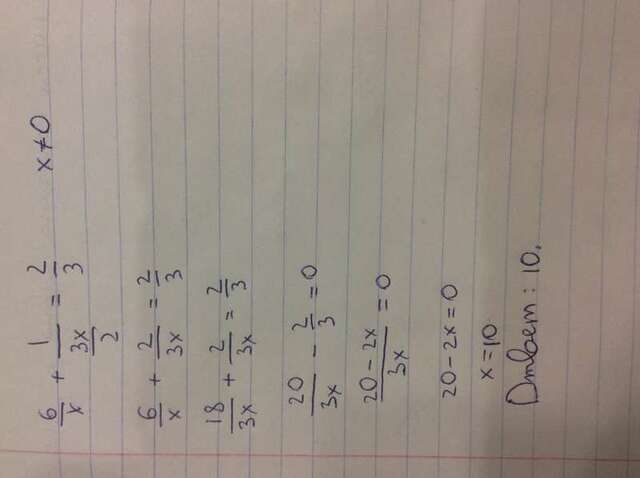 6/x + 1/(3x/2) = 2/3 x≠0
6/x + 2/3x = 2/3
18/3x + 2/3x = 2/3
20/3x - 2/3 = 0
20-2x/3x = 0
20-2x=0
x=10
Ответ: 10.